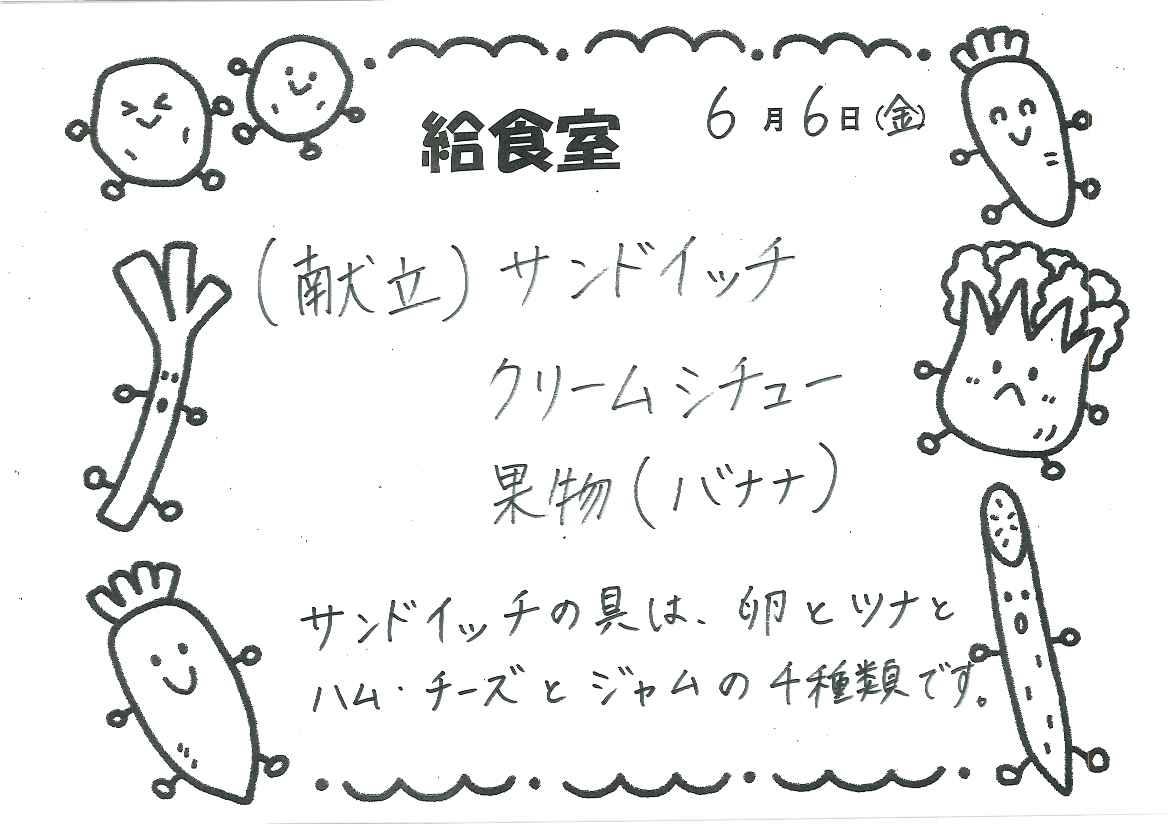 給食室 6月6日(金)
(献立)サンドイッチ
クリームシチュー
果物(バナナ)
サンドイッチの具は、卵とツナと
ハム・チーズとジャムの4種類です。